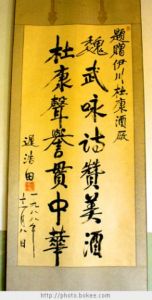 题赠伊川杜康酒厂
魏武咏诗赞美酒
杜康声誉贯中华
迟浩田
一九八八年
十一月八日
http://photo.bokee.com